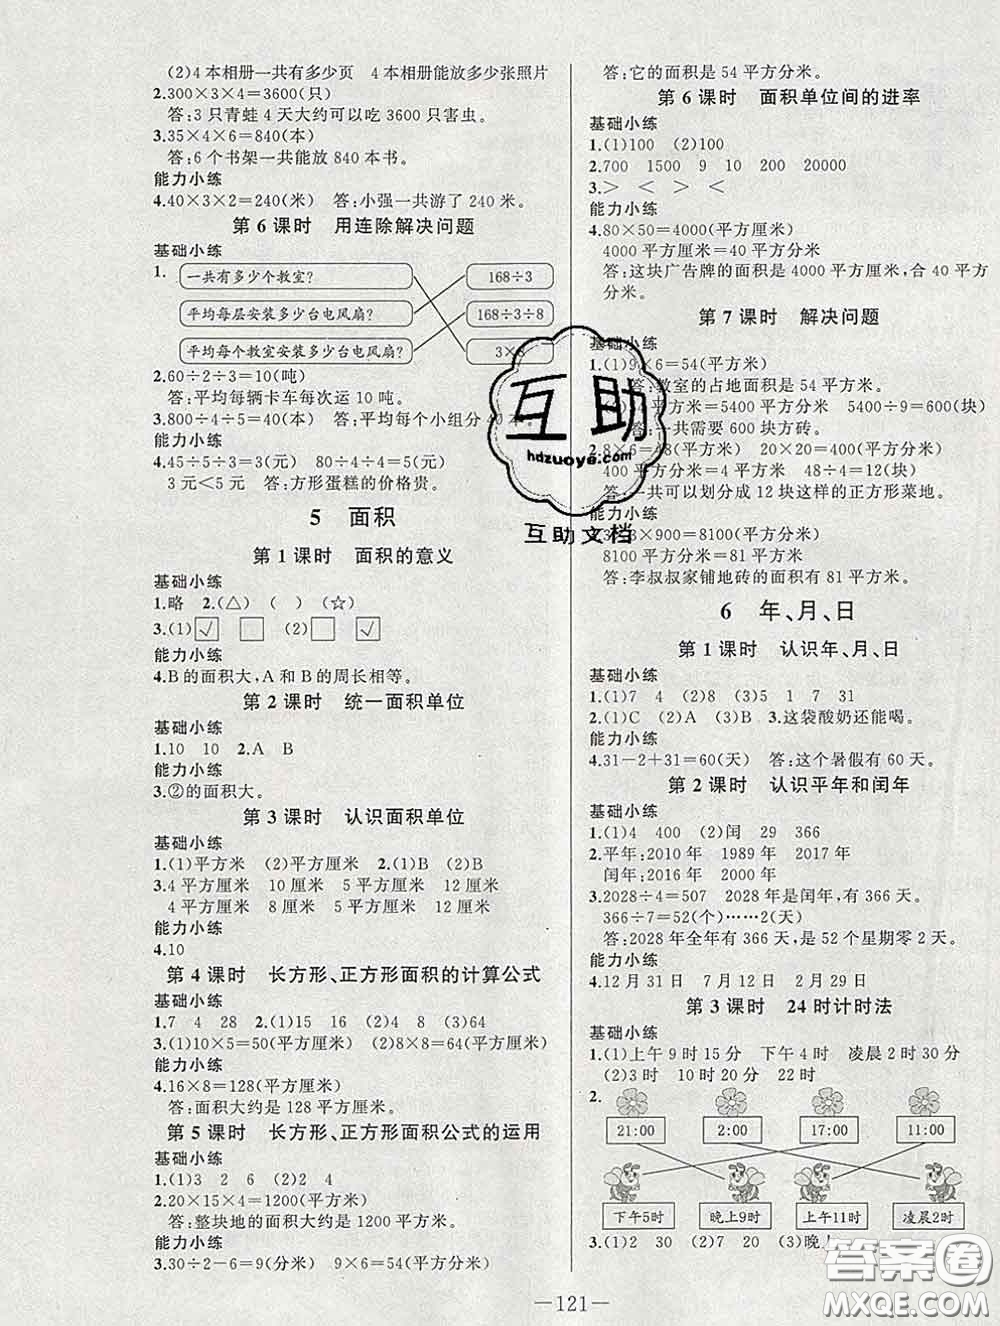 (2)4本相册一共有多少页 4本相册能放多少张照片
2.300×3×4=3600(只)
答:3只青蛙4天大约可以吃3600只害虫。
3.35×4×6=840(本)
答:6个书架一共能放840本书。
能力小练
4.40×3×2=240(米) 答:小强一共游了240米。
第6课时 用连除解决问题
基础小练
1.
一共有多少个教室? 168÷3
平均每层安装多少台电风扇? 168÷3÷8
平均每个教室安装多少台电风扇? 3×8
2.60÷2÷3=10(吨)
答:平均每辆卡车每次运10吨。
3.800÷4÷5=40(本) 答:平均每个小组分40本。
能力小练
4.45÷5÷3=3(元) 80÷4÷4=5(元)
3元<5元 答:方形蛋糕的价格贵。
5 面积
第1课时 面积的意义
基础小练
1.略 2.(△) ( ) (☆)
3.(1)☑ □ (2)□ ☑
能力小练
4.B的面积大,A和B的周长相等。
第2课时 统一面积单位
基础小练
1.10 10 2.A B
能力小练
3.②的面积大。
第3课时 认识面积单位
基础小练
1.(1)平方米 (2)平方厘米 2.(1)B (2)B
3.4平方厘米 10厘米 5平方厘米 12厘米
4平方厘米 8厘米 5平方厘米 12厘米
能力小练
4.10
第4课时 长方形、正方形面积的计算公式
基础小练
1.7 4 28 2.(1)15 16 (2)4 8 (3)64
3.(1)10×5=50(平方厘米) (2)8×8=64(平方厘米)
能力小练
4.16×8=128(平方厘米)
答:面积大约是128平方厘米。
第5课时 长方形、正方形面积公式的运用
基础小练
1.(1)3 2 6 (2)2 4
2.20×15×4=1200(平方米)
答:整块地的面积大约是1200平方米。
能力小练
3.30÷2-6=9(分米) 9×6=54(平方分米)
答:它的面积是54平方分米。
第6课时 面积单位间的进率
基础小练
1.(1)100 (2)100
2.700 1500 9 10 200 20000
3.> < > <
能力小练
4.80×50=4000(平方厘米)
4000平方厘米=40平方分米
答:这块广告牌的面积是4000平方厘米,合40平方分米。
第7课时 解决问题
基础小练
1.(1)9×6=54(平方米)
答:教室的占地面积是54平方米。
平方米=5400平方分米 5400÷9=600(块)
答:一共需要600块方砖。
2.8×6=48(平方米) 20×20=400(平方分米)
400平方分米=4平方米 48÷4=12(块)
答:一共可以划分成12块这样的正方形菜地。
能力小练
3×900=8100(平方分米)
8100平方分米=81平方米
答:李叔叔家铺地砖的面积有81平方米。
6 年、月、日
第1课时 认识年、月、日
基础小练
1.(1)7 4 (2)8 (3)5 1 7 31
2.(1)C (2)A (3)B 3.这袋酸奶还能喝。
能力小练
4.31-2+31=60(天) 答:这个暑假有60天。
第2课时 认识平年和闰年
基础小练
1.(1)4 400 (2)闰 29 366
2.平年:2010年 1989年 2017年
闰年:2016年 2000年
3.2028÷4=507 2028年是闰年,有366天。
366÷7=52(个)……2(天)
答:2028年全年有366天,是52个星期零2天。
能力小练
4.12月31日 7月12日 2月29日
第3课时 24时计时法
基础小练
1.(1)上午9时15分 下午4时 凌晨2时30分
(2)3时 10时20分 22时
2.
21:00 2:00 17:00 11:00
下午5时 晚上9时 上午11时 凌晨2时
3.(1)2 30 (2)7 20 (3)晚
—121—
互助
hdzuoye.com
互助文档
答案圈
MXQE.COM